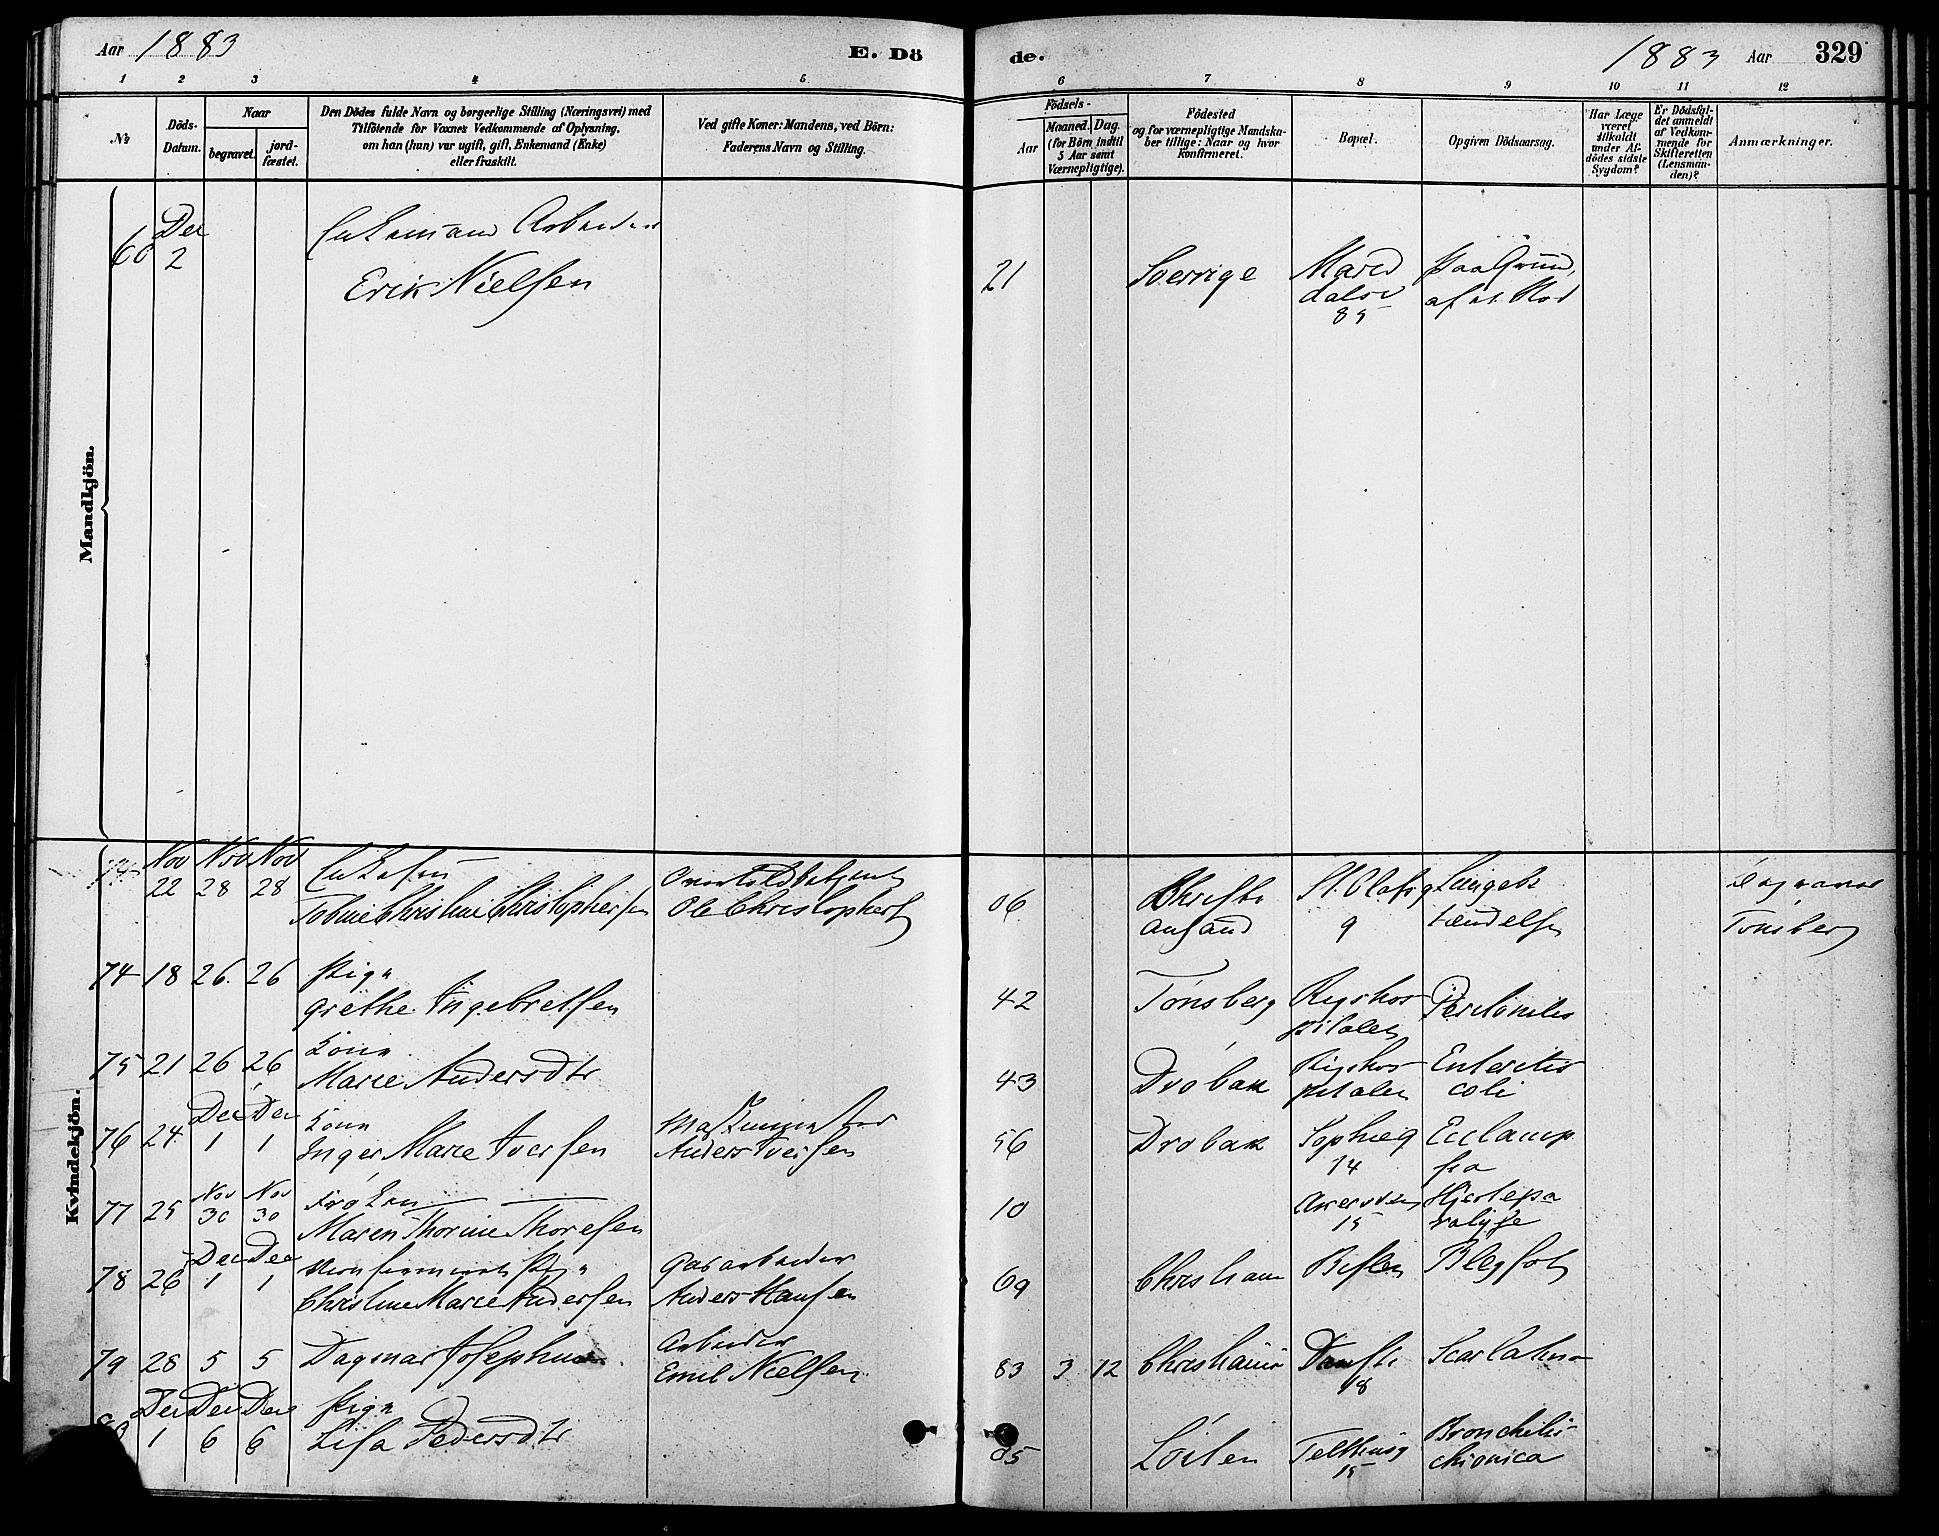 Aar 1883
E. Dö
de.
1883 Aar 329
1 2 3 4 5
6 7 8 9 10 11 12
No
Döds-
Datum.
Naar
begravet.
jord-
fæstet.
Den Dödes fulde Navn og borgerlige Stilling (Næringsvei) med
Tilföiende for Voxnes Vedkommende af Oplysning,
om han (hun) var ugift, gift, Enkemand (Enke)
eller fraskilt.
Ved gifte Koner: Mandens, ved Börn:
Faderens Navn og Stilling.
Födsels-
Aar
Maaned.
Dag.
(for Börn indtil
5 Aar samt
Værnepligtige).
Födested
og for værnepligtige Mandska-
ber tillige: Naar og hvor
konfirmeret.
Bopæl.
Opgiven Dödsaarsag.
Har Læge
været
tilkaldt
under Af-
dödes sidste
Sygdom?
Er Dödsfal-
det anmeldt
af Vedkom-
mende for
Skifteretten
(Lensman-
den)?
Anmærkninger.
Mandkjön.
60 Dec 2
Arbeider
Erik Nielsen
21 Sverrige
85
Kvindekjön.
Nov Nov Nov
22 28 28
Christophersen
Ole Christophers
06
St. Olafsg
9
Tønsberg
74 18 26. 26 Pige
Grethe Ingebretsen
42 Tønsberg Rigshos-
pitalet Peritonitis
75 21 26 26 Kone
Marie Andersdtr
43 Drøbak Rigshos-
pitalet Enteritis
coli
76 24 Dec 1 Dec 1 Kone
Inger Marie Iversen
Anders Iversen
56 Drøbak Sophieg
14 Eclamp
sia
77 25 Nov 30 Nov 30
Maren Thorine Thoresen
10
15 Hjertepa
ralyse
78 26 Dec 1 Dec 1
Christine Marie Andersen
Gasarbeider
Anders Hansen
69 Christiania Bislet Blegsot
79 28 5 5 Dagmar Josephine
Arbeider
Emil Nielsen
83 3 12 Christiania
18 Scarlatina
Dec Dec Dec
1 6 6 Pige
Lisa Pedersdtr
05 Løiten Telthusg
15 Bronchitis
chronica